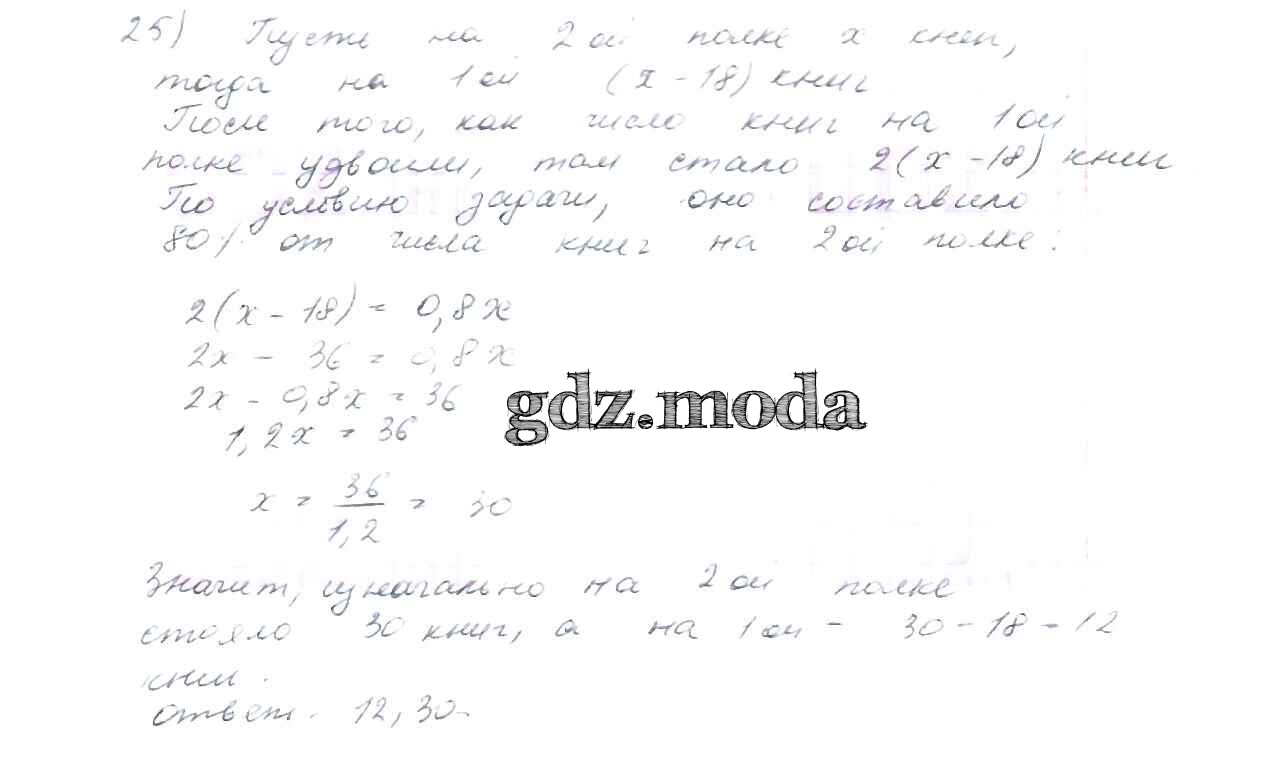 25) Пусть на 2ой полке x книг,
тогда на 1ой (x - 18) книг
После того, как число книг на 1ой
полке удвоили, там стало 2(x - 18) книг
По условию задачи, оно составило
80% от числа книг на 2ой полке:
2(x - 18) = 0,8x
2x - 36 = 0,8x
2x - 0,8x = 36
gdz.moda
1,2x = 36
x = 36/1,2 = 30
Значит, изначально на 2ой полке
стояло 30 книг, а на 1ой - 30 - 18 = 12
книг.
Ответ: 12, 30.